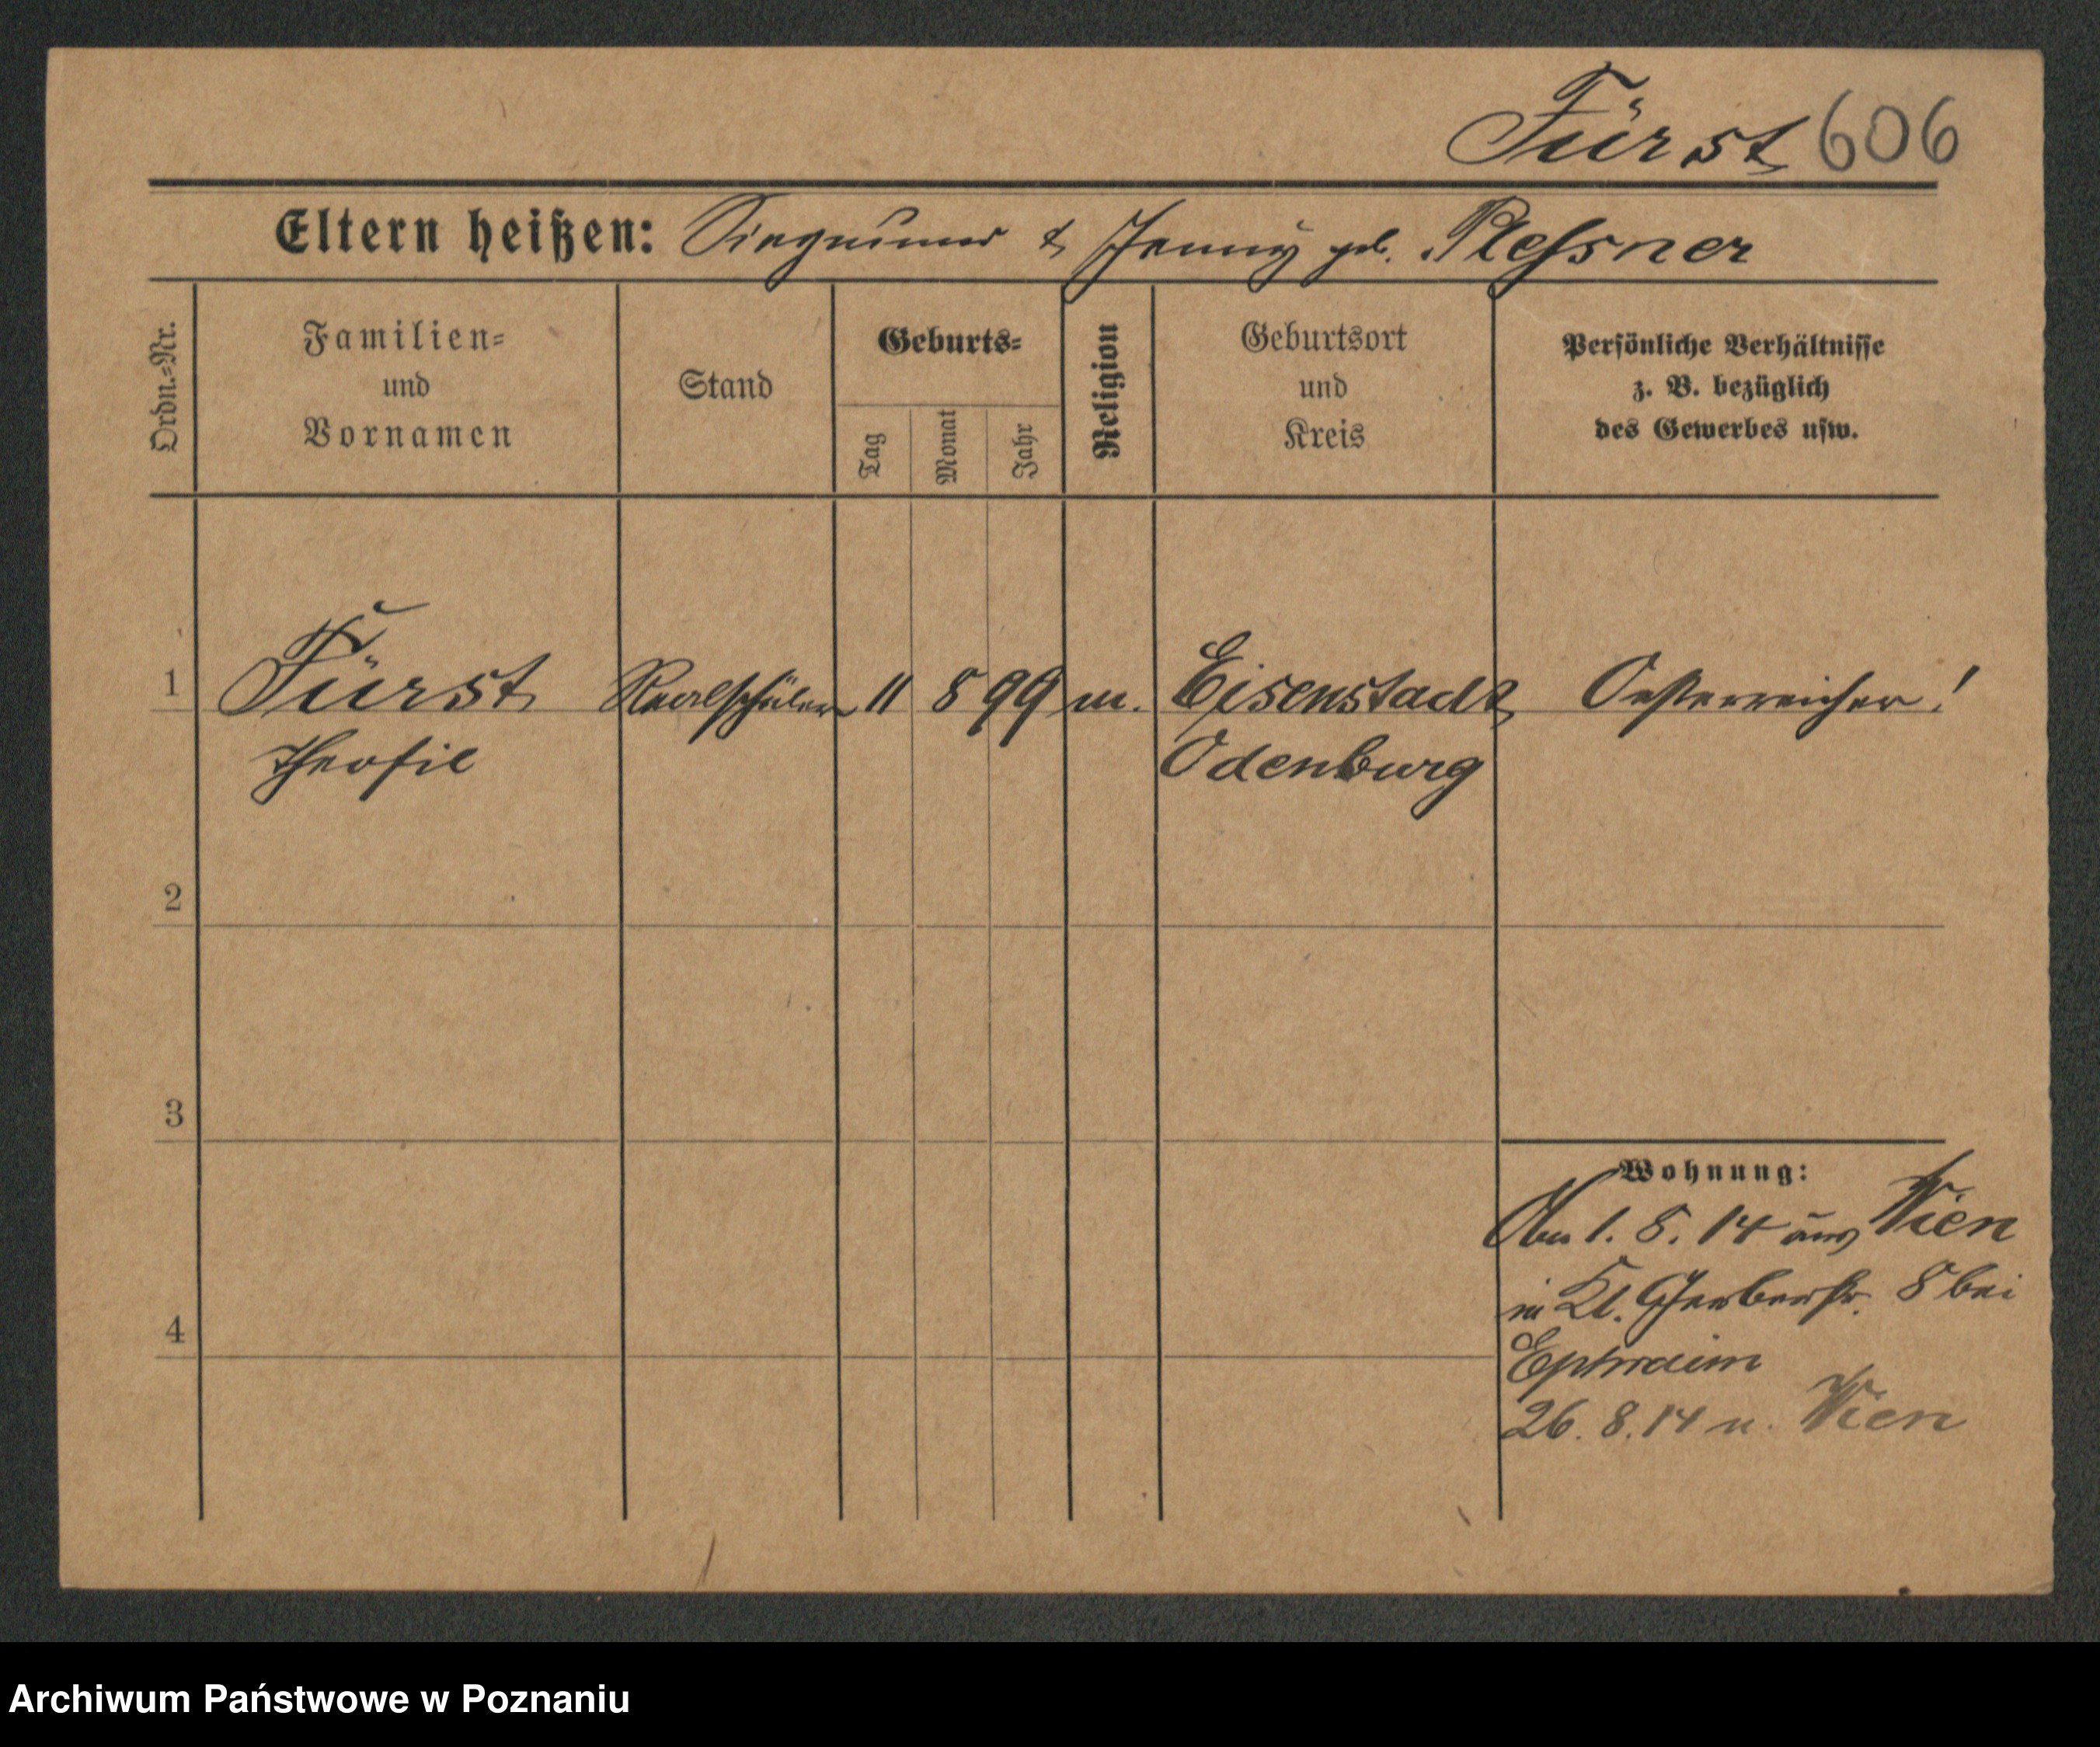 Fürst 606
Eltern heißen: Siegmund & Jenny geb. Plessner
Ordn.=Nr.
Familien=
und
Vornamen
Stand
Geburts=
Tag
Monat
Jahr
Religion
Geburtsort
und
Kreis
Persönliche Verhältnisse
z. B. bezüglich
des Gewerbes usw.
1 Fürst Realschüler 11 8 99 m. Eisenstadt Oesterreicher!
Theofil Odenburg
2
3
4
Wohnung:
Am 1. 8. 14 aus Wien
in Kl. Gerberstr. 8 bei
Ephraim
26. 8. 14 n. Wien
Archiwum Państwowe w Poznaniu